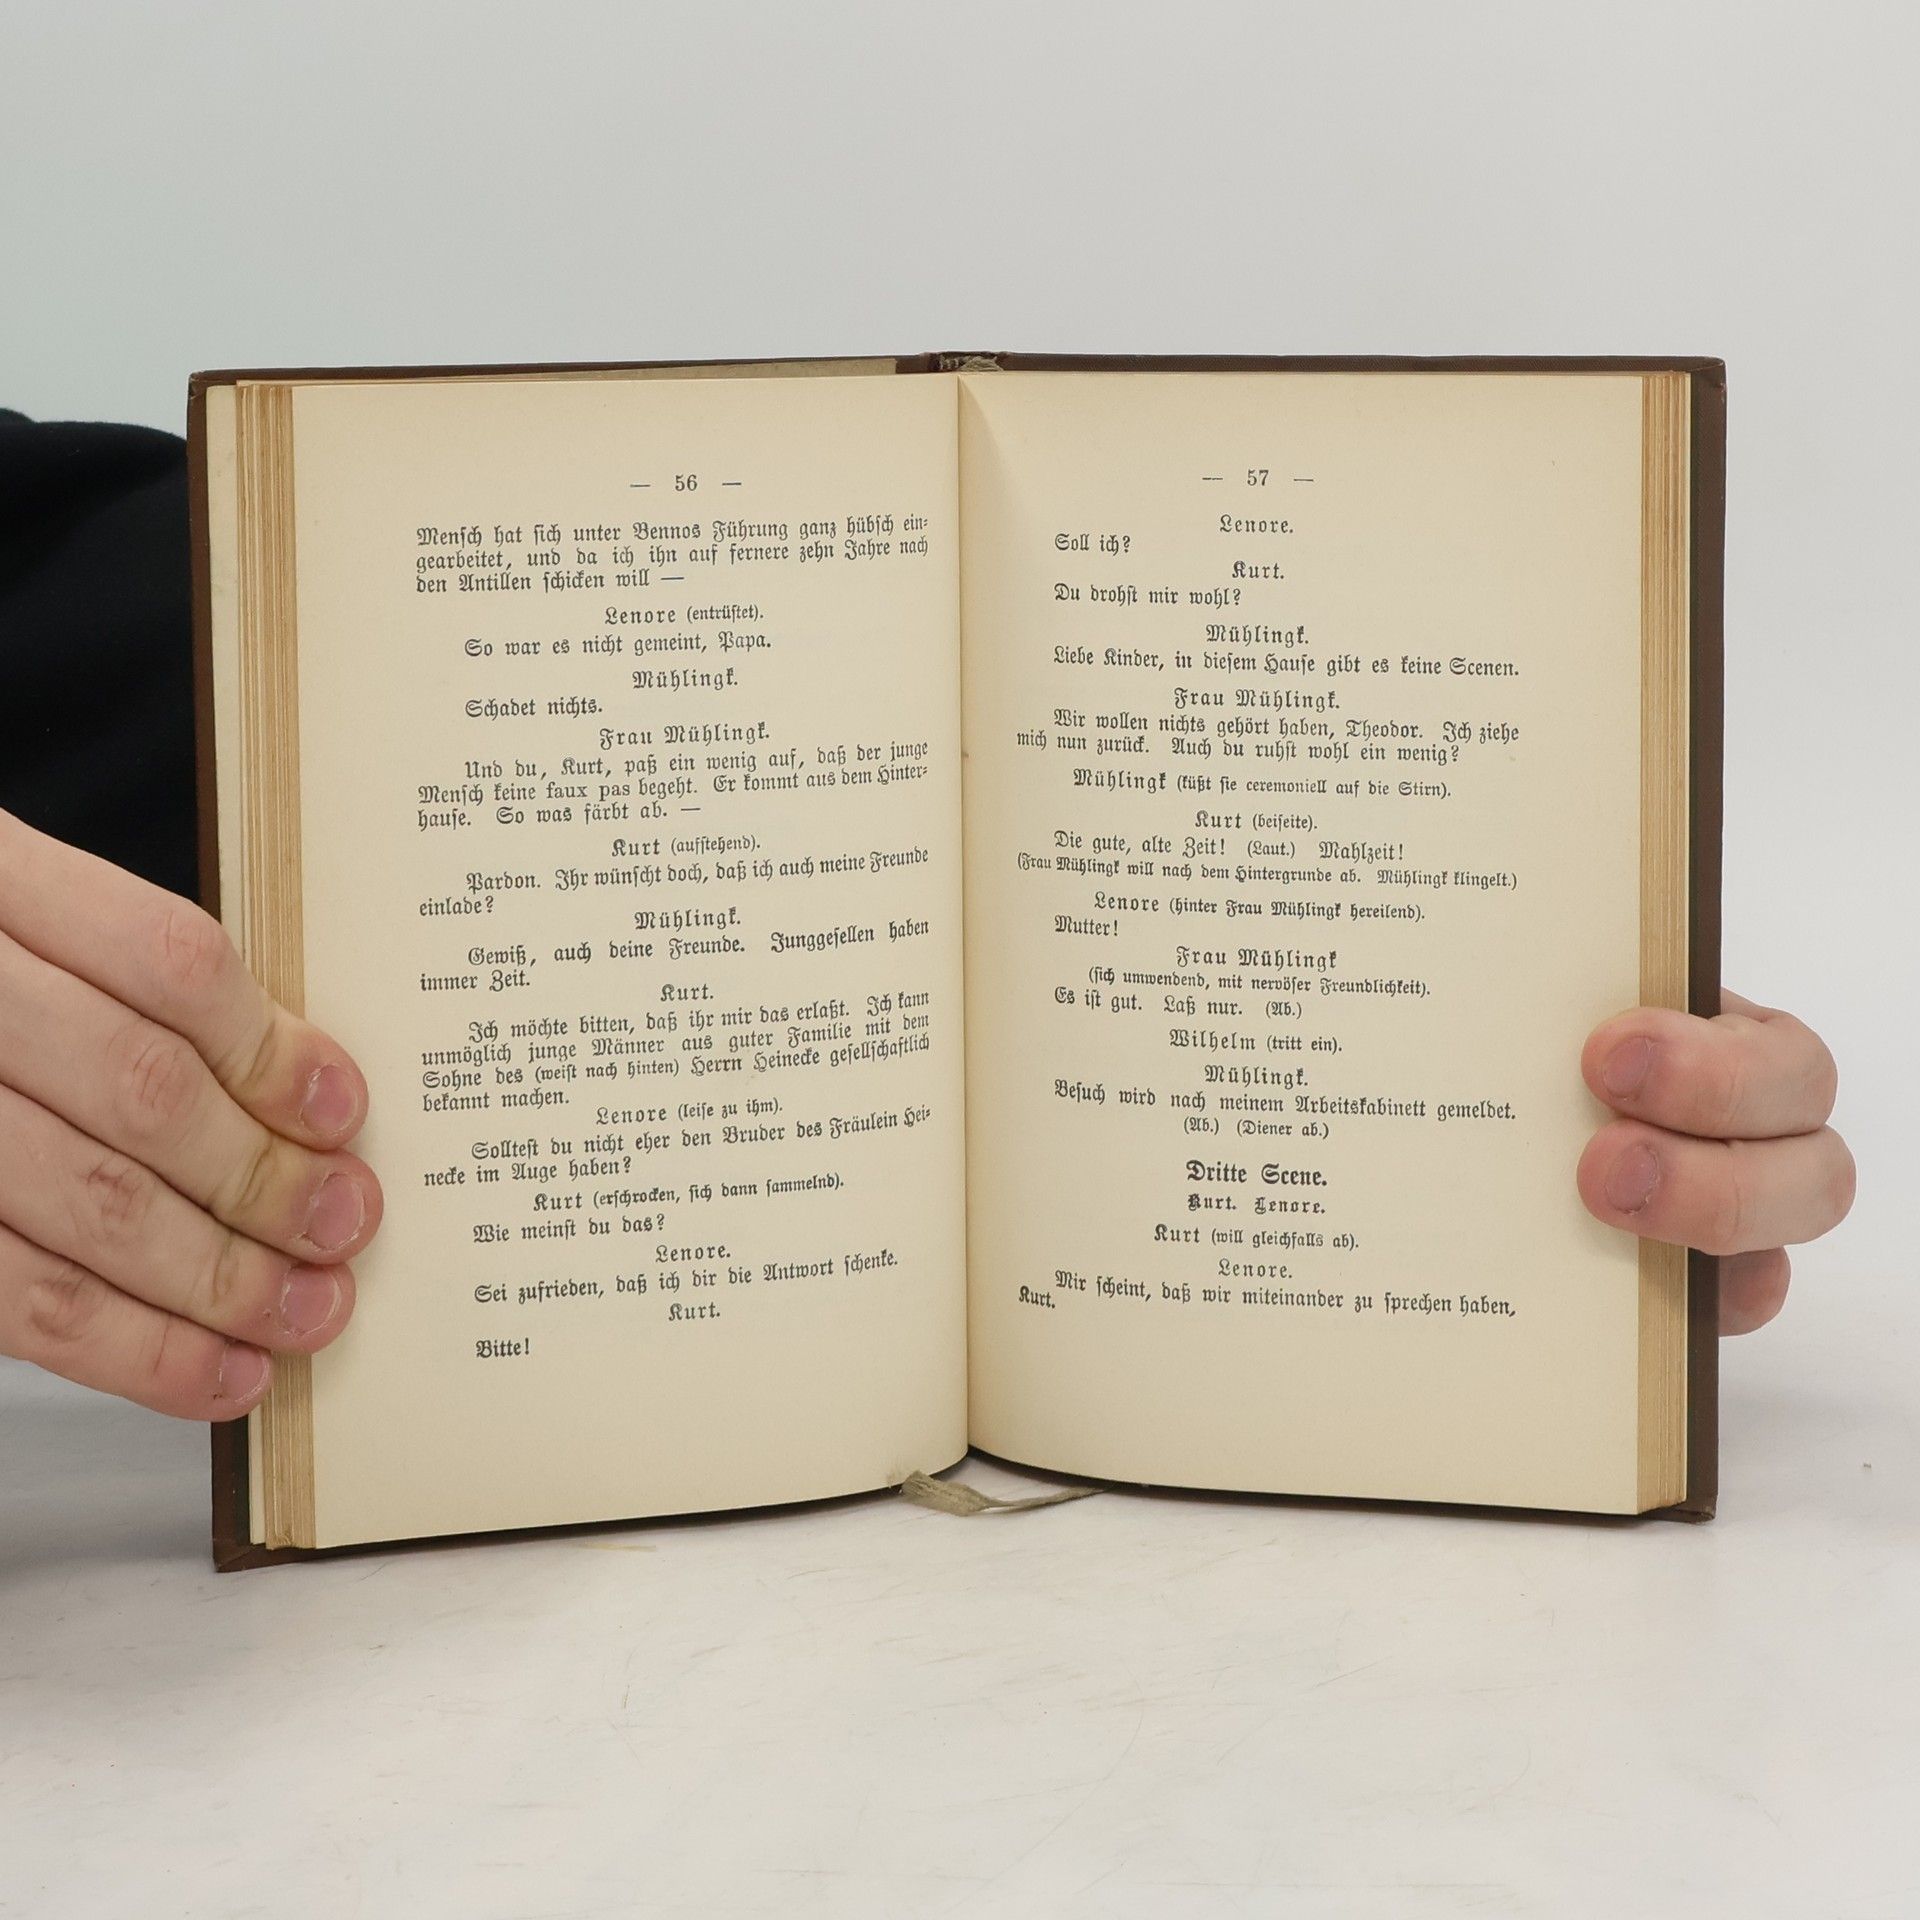 — 56 —
Menſch hat ſich unter Bennos Führung ganz hübſch ein⸗
gearbeitet, und da ich ihn auf fernere zehn Jahre nach
den Antillen ſchicken will —
Lenore (entrüſtet).
So war es nicht gemeint, Papa.
Mühlingk.
Schadet nichts.
Frau Mühlingk.
Und du, Kurt, paß ein wenig auf, daß der junge
Menſch keine faux pas begeht. Er kommt aus dem Hinter⸗
hauſe. So was färbt ab. —
Kurt (aufſtehend).
Pardon. Ihr wünſcht doch, daß ich auch meine Freunde
einlade?
Mühlingk.
Gewiß, auch deine Freunde. Junggeſellen haben
immer Zeit.
Kurt.
Ich möchte bitten, daß ihr mir das erlaßt. Ich kann
unmöglich junge Männer aus guter Familie mit dem
Sohne des (weiſt nach hinten) Herrn Heinecke geſellſchaftlich
bekannt machen.
Lenore (leiſe zu ihm).
Sollteſt du nicht eher den Bruder des Fräulein Hei⸗
necke im Auge haben?
Kurt (erſchrocken, ſich dann ſammelnd).
Wie meinſt du das?
Lenore.
Sei zufrieden, daß ich dir die Antwort ſchenke.
Kurt.
Bitte!
— 57 —
Lenore.
Soll ich?
Kurt.
Du drohſt mir wohl?
Mühlingk.
Liebe Kinder, in dieſem Hauſe gibt es keine Scenen.
Frau Mühlingk.
Wir wollen nichts gehört haben, Theodor. Ich ziehe
mich nun zurück. Auch du ruhſt wohl ein wenig?
Mühlingk (küßt ſie ceremoniell auf die Stirn).
Kurt (beiſeite).
Die gute, alte Zeit! (Laut.) Mahlzeit!
(Frau Mühlingk will nach dem Hintergrunde ab. Mühlingk klingelt.)
Lenore (hinter Frau Mühlingk hereilend).
Mutter!
Frau Mühlingk
(ſich umwendend, mit nervöſer Freundlichkeit).
Es iſt gut. Laß nur. (Ab.)
Wilhelm (tritt ein).
Mühlingk.
Beſuch wird nach meinem Arbeitskabinett gemeldet.
(Ab.) (Diener ab.)
Dritte Scene.
Kurt. Lenore.
Kurt (will gleichfalls ab).
Lenore.
Mir ſcheint, daß wir miteinander zu ſprechen haben,
Kurt.